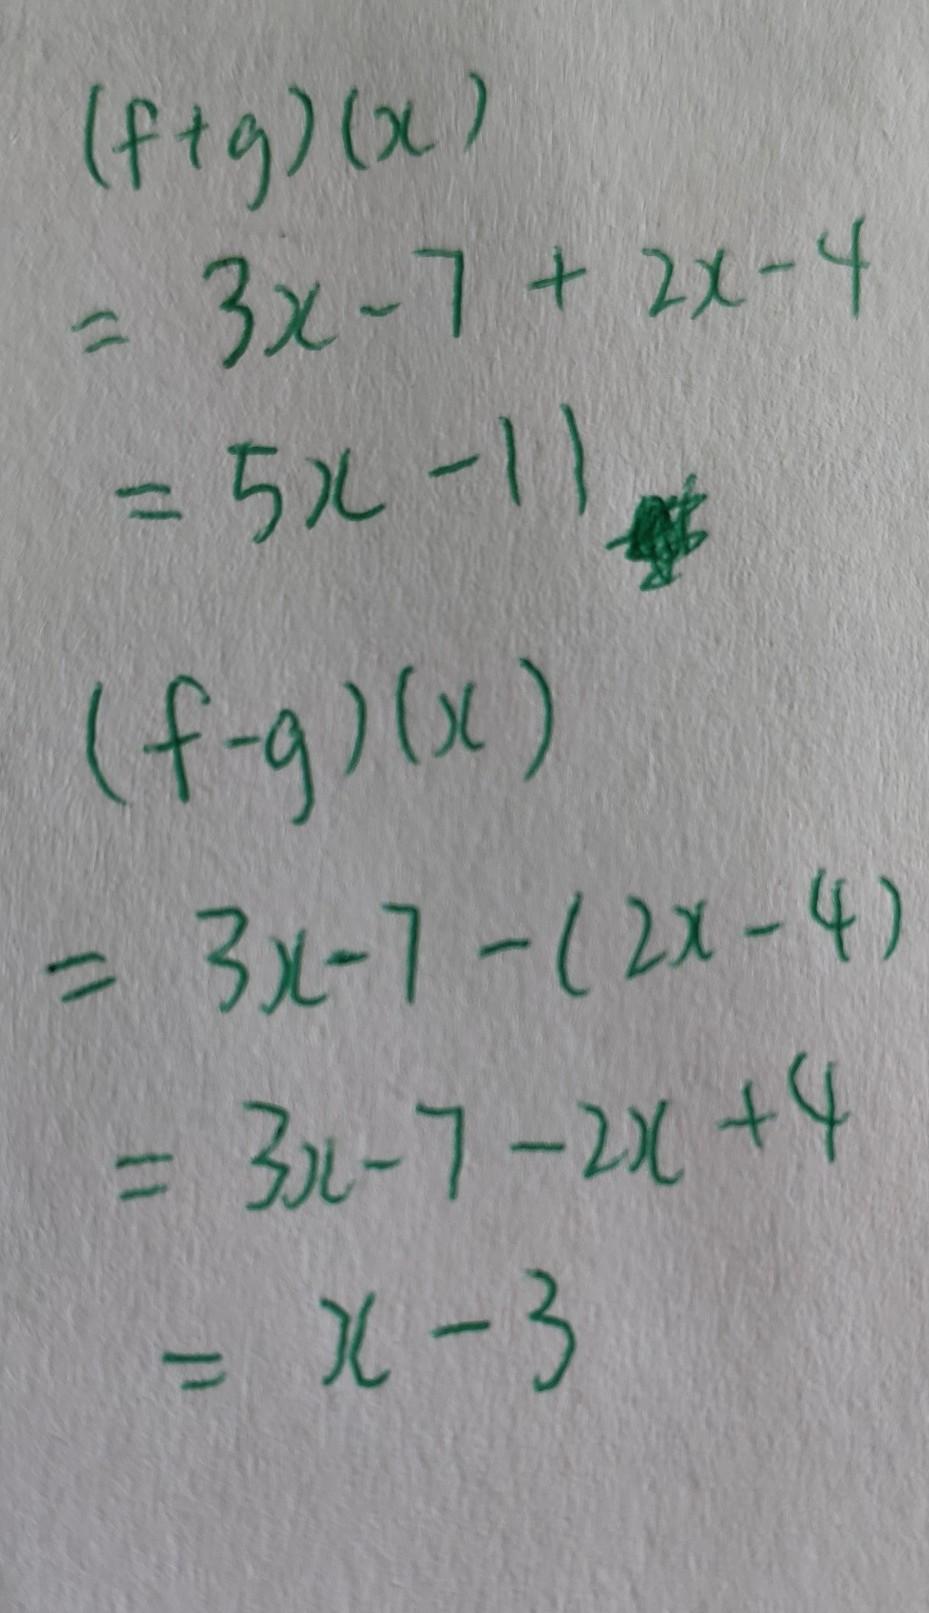 (f+g)(x)
= 3x-7 + 2x-4
= 5x -11
(f-g)(x)
= 3x-7 -(2x-4)
= 3x-7 -2x +4
= x-3